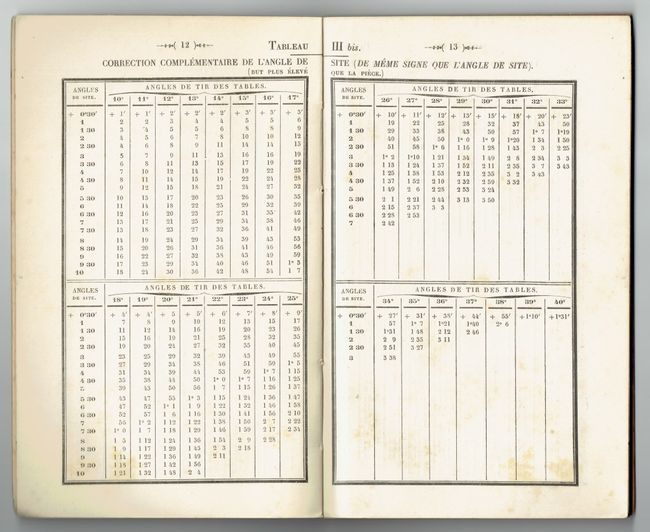 12
TABLEAU
CORRECTION COMPLÉMENTAIRE DE L'ANGLE DE
(BUT PLUS ÉLEVÉ
ANGLES DE SITE.
ANGLES DE TIR DES TABLES.
10° 11° 12° 13° 14° 15° 16° 17°
+ 0°30' + 1' + 2' + 2' + 2' + 2' + 3'
1 2 2 3 4 4 5 5 6
1 30 3 4 5 5 6 8 8 9
2 4 5 6 7 8 10 10 12
2 30 4 6 8 9 11 14 14 15
3 5 7 9 11 13 16 16 19
3 30 6 8 11 13 15 17 19 22
4 7 10 12 14 17 19 22 25
4 30 8 11 14 15 19 22 24 28
5 9 12 15 18 21 24 27 32
5 30 10 13 17 20 23 26 30 35
6 11 14 18 22 25 29 32 39
6 30 12 16 20 23 27 31 35 42
7 13 17 21 25 29 34 38 46
7 30 13 18 23 27 32 36 41 49
8 14 19 24 29 34 39 43 53
8 30 15 20 26 31 36 41 46 56
9 16 22 27 32 38 43 49 59
9 30 17 23 29 34 40 46 51 1° 3
10 18 24 30 36 42 48 54 1 7
ANGLES DE SITE.
ANGLES DE TIR DES TABLES.
18° 19° 20° 21° 22° 23° 24° 25°
+ 0°30' + 4' + 4' + 5 + 5' + 6' + 7' + 8' + 9'
1 7 8 9 10 12 13 15 17
1 30 11 12 14 16 19 20 23 26
2 15 16 19 21 25 28 32 35
2 30 19 20 24 27 32 35 40 45
3 23 25 29 32 39 43 49 55
3 30 27 29 34 38 46 51 50 1° 5
4 31 34 39 44 53 59 1° 7 1 15
4 30 35 38 44 50 1° 0 1° 7 1 16 1 25
5 39 43 50 56 1 7 1 15 1 26 1 37
5 30 43 47 55 1° 3 1 15 1 24 1 36 1 47
6 47 52 1° 1 1 9 1 22 1 32 1 46 1 58
6 30 52 57 1 6 1 16 1 30 1 41 1 56 2 10
7 56 1° 2 1 12 1 22 1 38 1 50 2 7 2 22
7 30 1° 0 1 7 1 18 1 29 1 46 1 59 2 17 2 34
8 1 5 1 12 1 24 1 36 1 54 2 9 2 28
8 30 1 9 1 17 1 29 1 43 2 3 2 18
9 1 14 1 22 1 36 1 49 2 11
9 30 1 18 1 27 1 42 1 56
10 1 21 1 32 1 48 2 4
III bis.
13
SITE (DE MÊME SIGNE QUE L'ANGLE DE SITE).
QUE LA PIÈCE.)
ANGLES DE SITE.
ANGLES DE TIR DES TABLES.
26° 27° 28° 29° 30° 31° 32° 33°
+ 0°30' + 10' + 11' + 12' + 13' + 15' + 18' + 20' + 23'
1 19 22 25 28 32 37 43 50
1 30 29 33 38 43 50 57 1° 7 1°19
2 40 45 50 1° 0 1° 9 1°20 1 34 1 50
2 30 51 58 1° 6 1 16 1 28 1 43 2 3 2 25
3 1° 2 1°10 1 21 1 34 1 49 2 8 2 34 3 3
3 30 1 13 1 24 1 37 1 52 2 11 2 35 3 7 3 43
4 1 25 1 38 1 53 2 12 2 35 3 2 3 43
4 30 1 37 1 52 2 10 2 32 2 59 3 32
5 1 49 2 6 2 28 2 53 3 24
5 30 2 1 2 21 2 44 3 13 3 50
6 2 15 2 37 3 3
6 30 2 28 2 53
7 2 42
ANGLES DE SITE.
ANGLES DE TIR DES TABLES.
34° 35° 36° 37° 38° 39° 40°
+ 0°30' + 27' + 31' + 38' + 44' + 55' +1°10' +1°31'
1 57 1° 7 1°21 1°40 2° 6
1 30 1°31 1 48 2 12 2 46
2 2 9 2 35 3 11
2 30 2 51 3 27
3 3 38